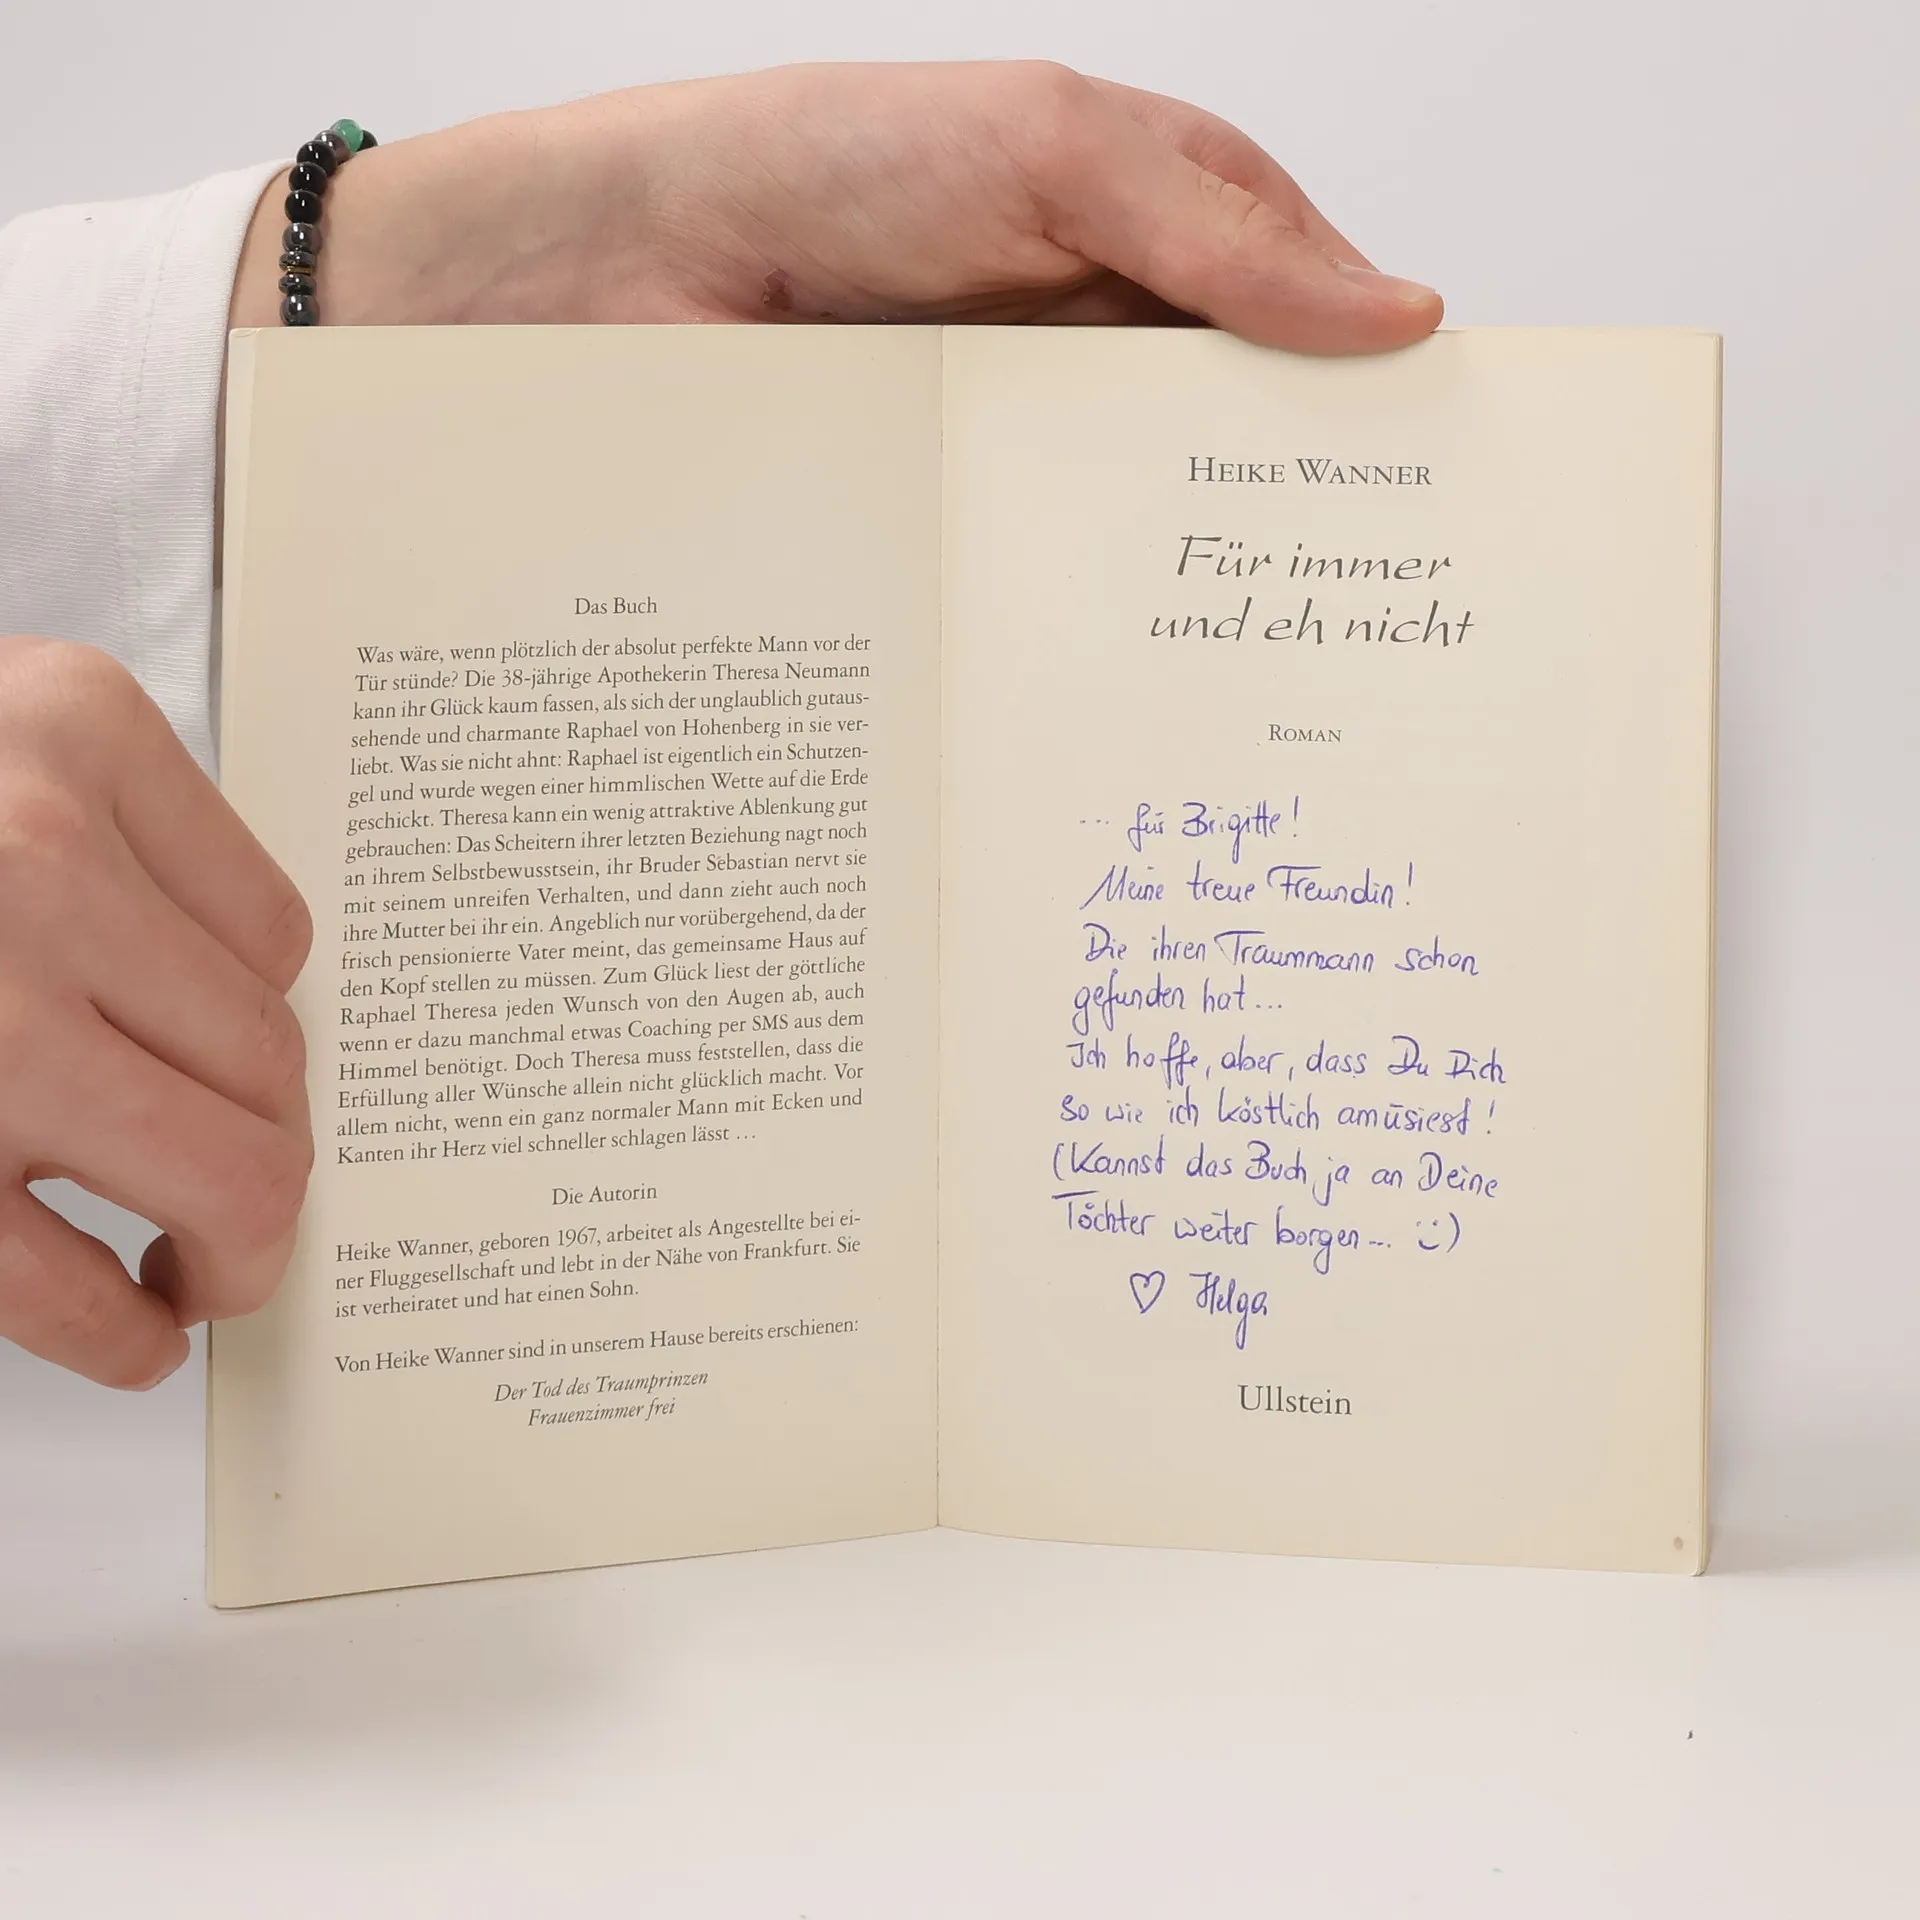 Das Buch
Was wäre, wenn plötzlich der absolut perfekte Mann vor der
Tür stünde? Die 38-jährige Apothekerin Theresa Neumann
kann ihr Glück kaum fassen, als sich der unglaublich gutaus-
sehende und charmante Raphael von Hohenberg in sie ver-
liebt. Was sie nicht ahnt: Raphael ist eigentlich ein Schutzen-
gel und wurde wegen einer himmlischen Wette auf die Erde
geschickt. Theresa kann ein wenig attraktive Ablenkung gut
gebrauchen: Das Scheitern ihrer letzten Beziehung nagt noch
an ihrem Selbstbewusstsein, ihr Bruder Sebastian nervt sie
mit seinem unreifen Verhalten, und dann zieht auch noch
ihre Mutter bei ihr ein. Angeblich nur vorübergehend, da der
frisch pensionierte Vater meint, das gemeinsame Haus auf
den Kopf stellen zu müssen. Zum Glück liest der göttliche
Raphael Theresa jeden Wunsch von den Augen ab, auch
wenn er dazu manchmal etwas Coaching per SMS aus dem
Himmel benötigt. Doch Theresa muss feststellen, dass die
Erfüllung aller Wünsche allein nicht glücklich macht. Vor
allem nicht, wenn ein ganz normaler Mann mit Ecken und
Kanten ihr Herz viel schneller schlagen lässt …
Die Autorin
Heike Wanner, geboren 1967, arbeitet als Angestellte bei ei-
ner Fluggesellschaft und lebt in der Nähe von Frankfurt. Sie
ist verheiratet und hat einen Sohn.
Von Heike Wanner sind in unserem Hause bereits erschienen:
Der Tod des Traumprinzen
Frauenzimmer frei
HEIKE WANNER
Für immer
und eh nicht
ROMAN
... für Brigitte!
Meine treue Freundin!
Die ihren Traummann schon
gefunden hat...
Ich hoffe, aber, dass Du Dich
so wie ich köstlich amüsiest!
(Kannst das Buch ja an Deine
Töchter weiter borgen... ü)
♡ Helga
Ullstein